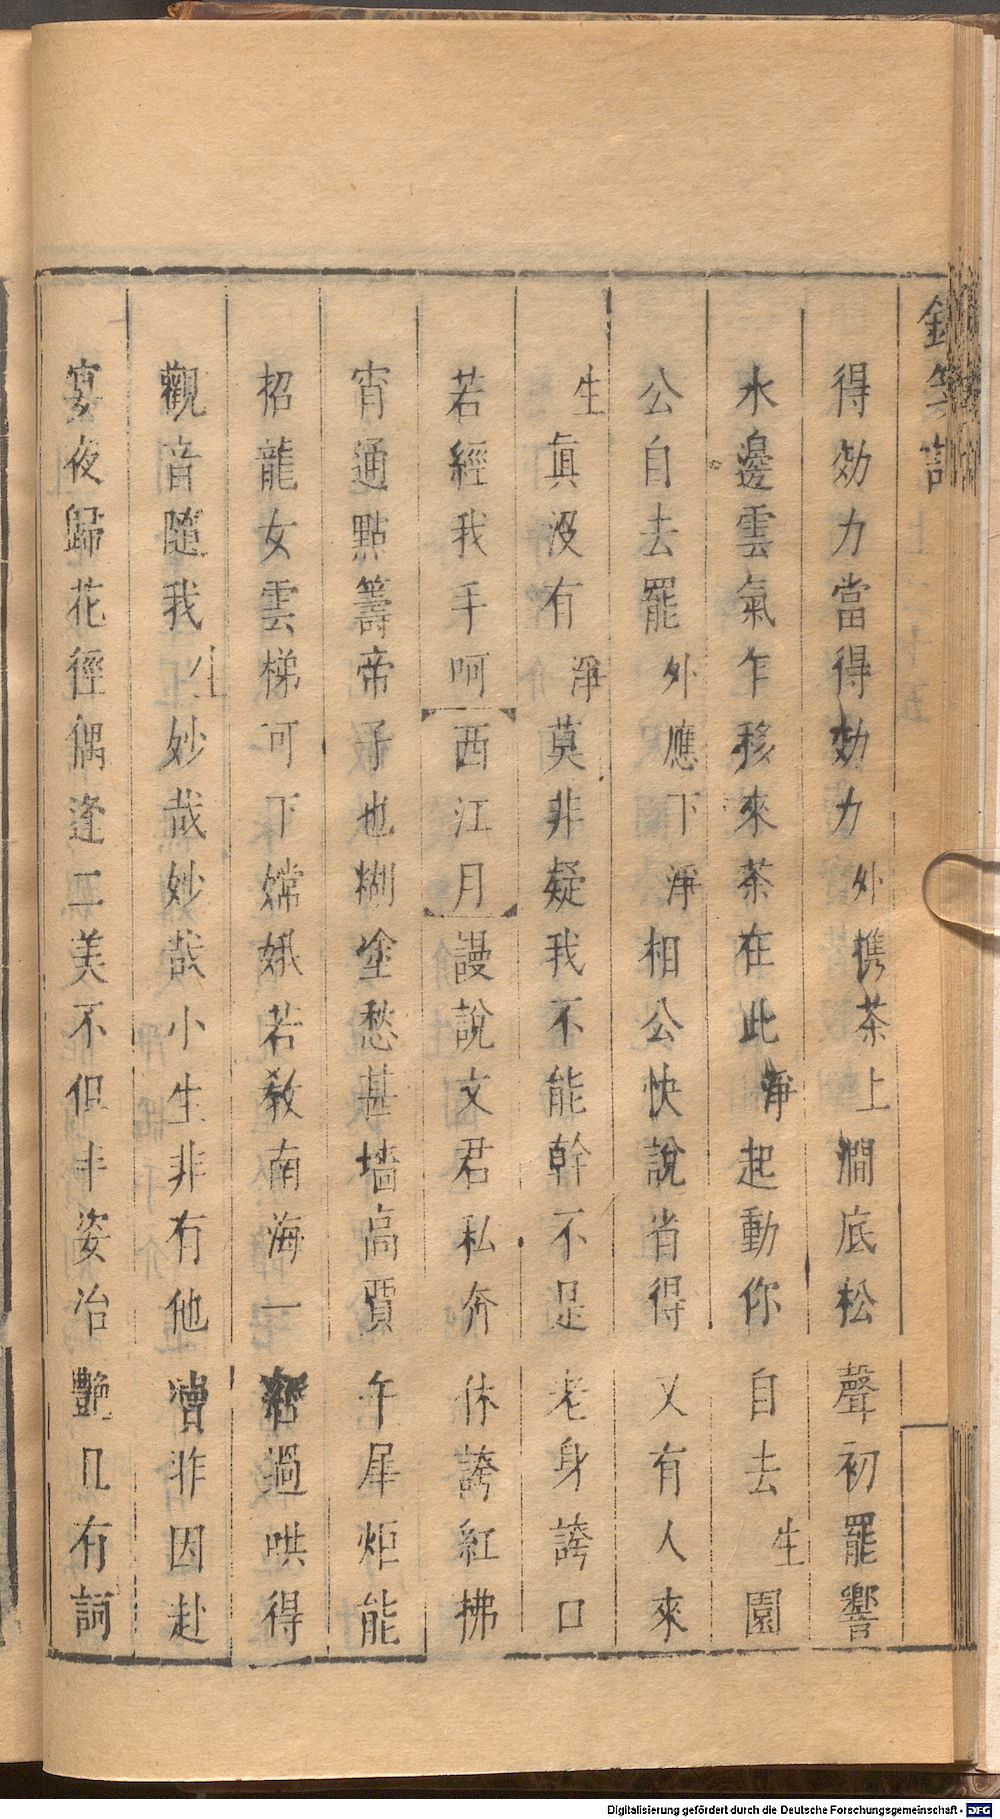 得効力當得効力外携茶上澗底松聲初罷響
水邊雲氣乍移來茶在此淨起動你自去生園
公自去罷外應下淨相公快說省得又有人來
生眞没有淨莫非疑我不能幹不足老身誇口
若經我手呵西江月謾說文君私奔休誇紅拂
宵通點籌帝子也糊塗愁甚墻高賈午犀炬能
招龍女雲梯可下嫦娥若敎南海一經過哄得
觀音隨我生妙哉妙哉小生非有他瀆非因赴
宴夜歸花徑偶逢二美不但丰姿冶艶且有詞
Digitalisierung gefördert durch die Deutsche Forschungsgemeinschaft - DFG